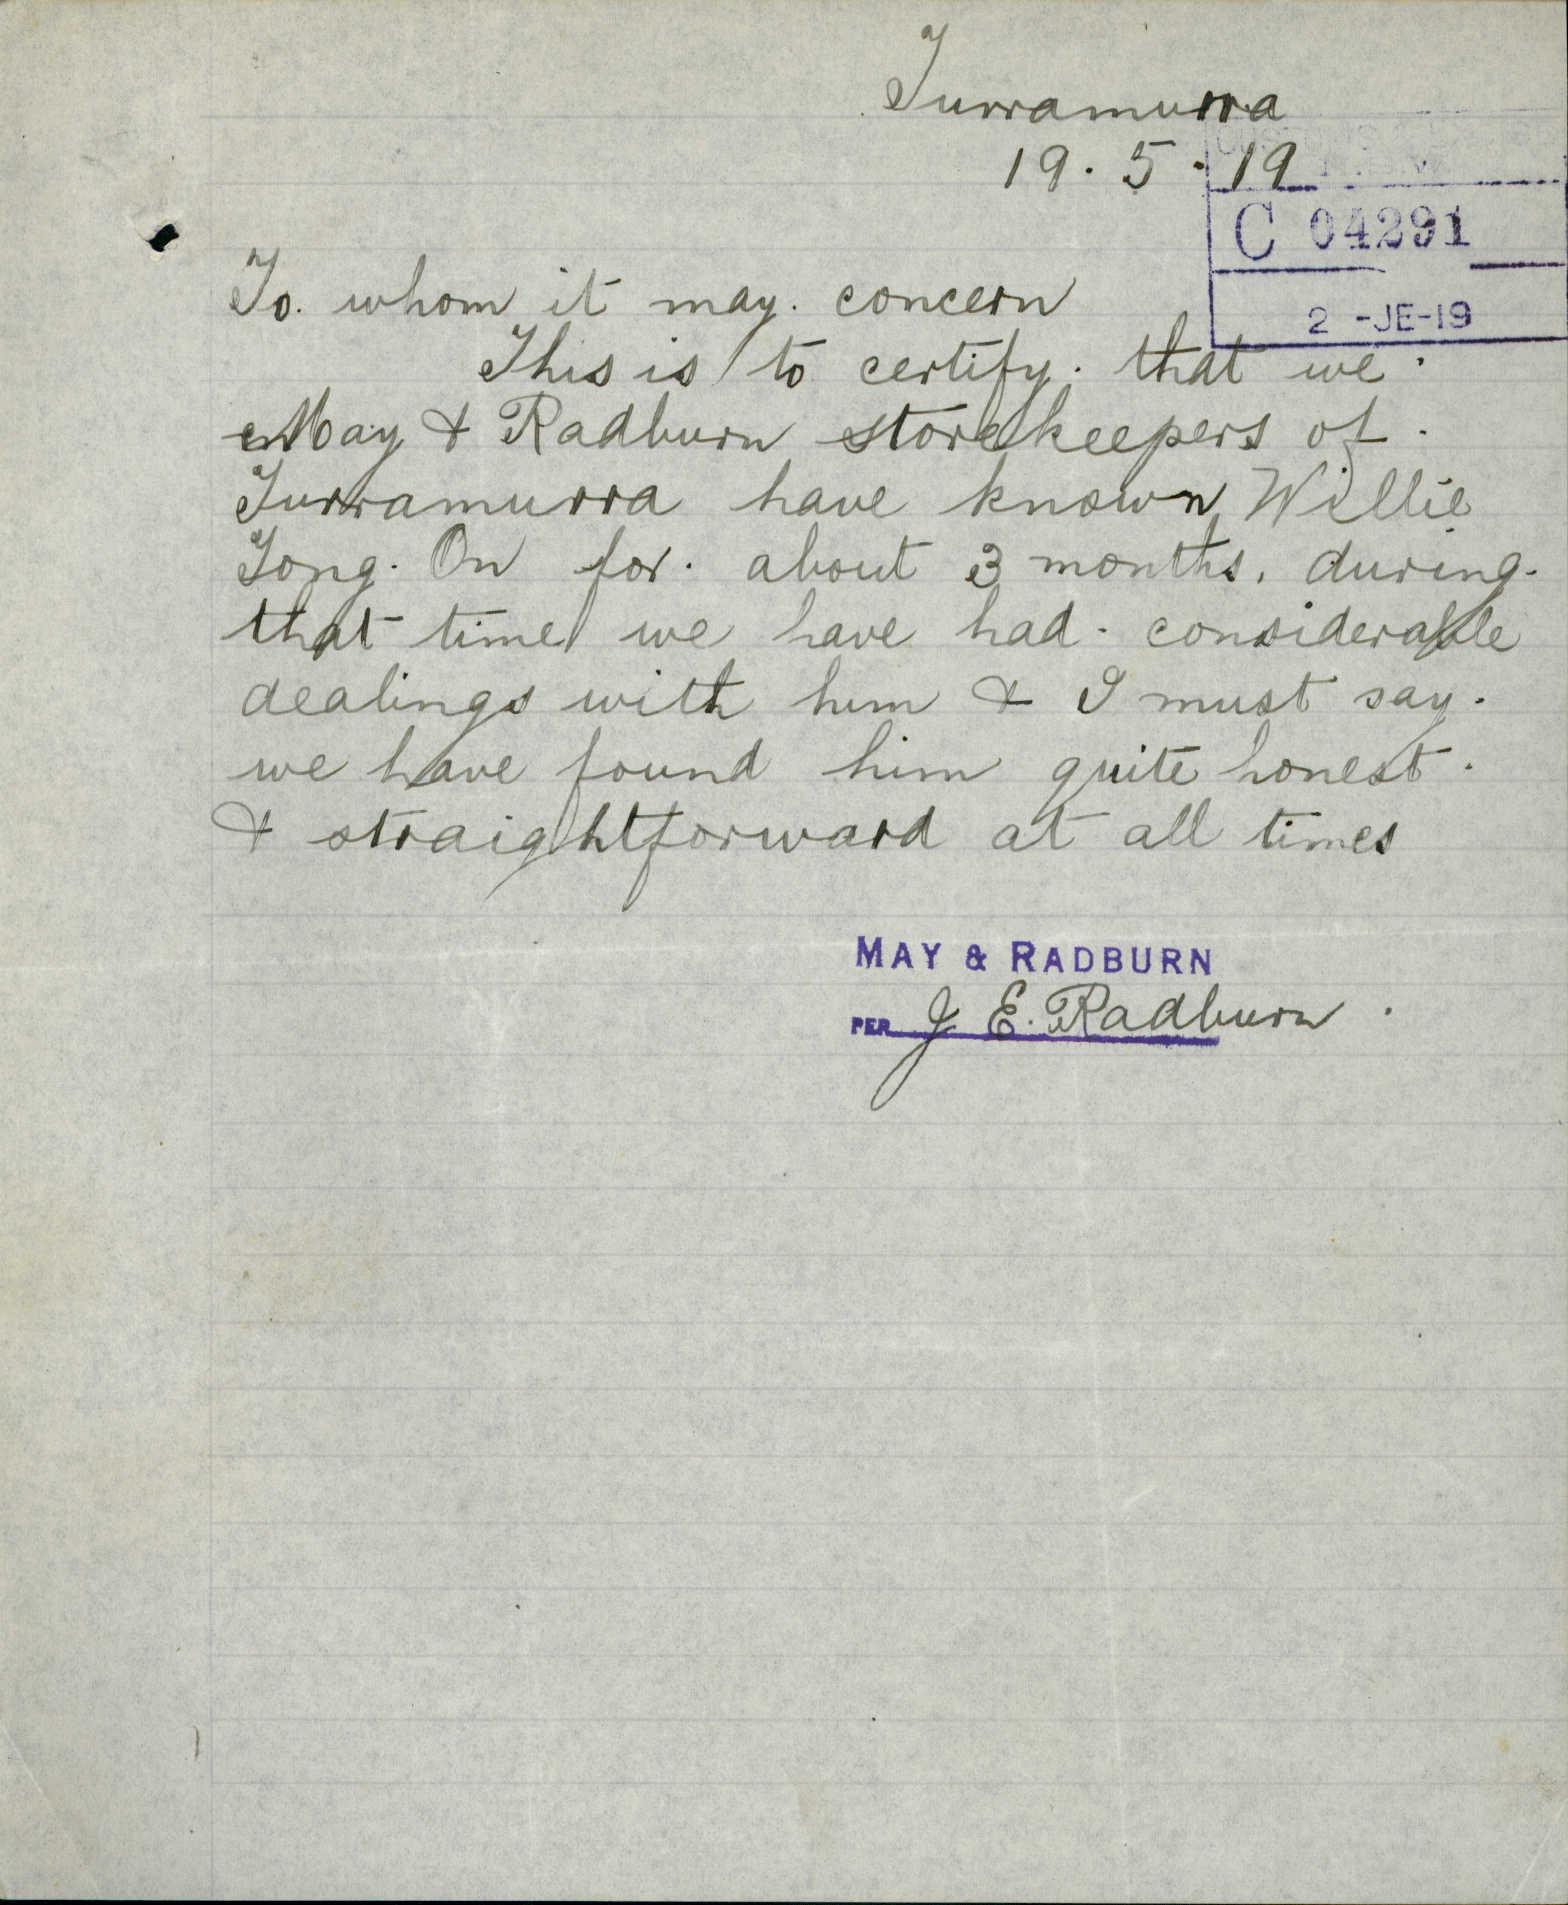 Turramurra
19. 5. 19
C 04291
2 -JE-19
To. whom it may. concern
This is to certify. that we.
May & Radburn storekeepers of.
Turramurra have known Willie
Tong. On for. about 3 months, during.
that time we have had. considerable
dealings with him & I must say.
we have found him quite honest.
& straightforward at all times
MAY & RADBURN
PER J E. Radburn.